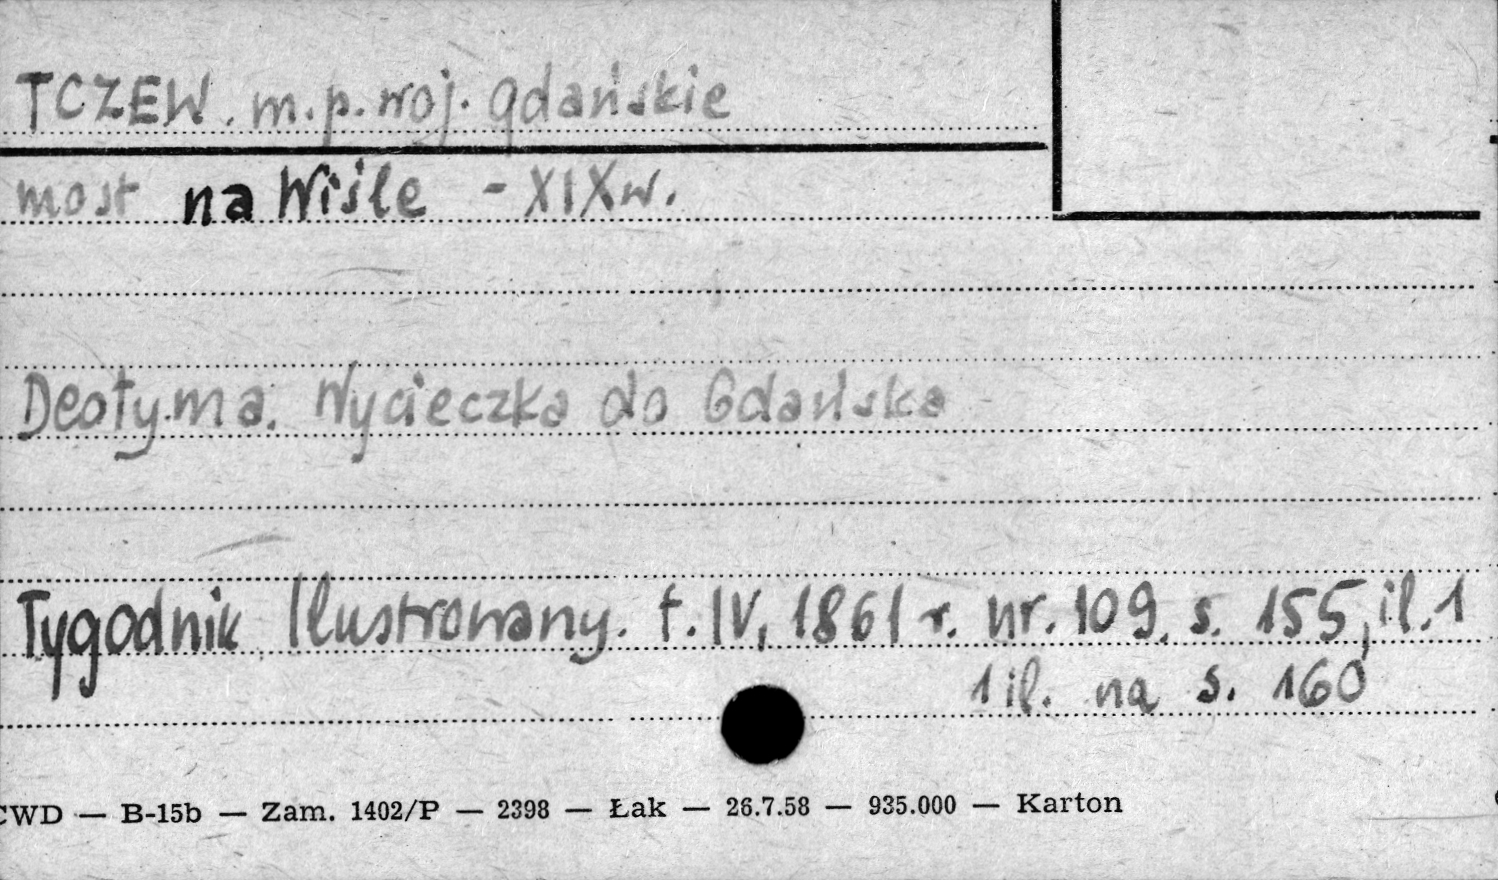 TCZEW. m.p. woj. gdańskie
most na Wiśle - XIX w.
Deotyma. Wycieczka do Gdańska
Tygodnik Ilustrowany. t. IV, 1861 r. nr. 109. s. 155, il. 1
1 il. na s. 160
CWD — B-15b — Zam. 1402/P — 2398 — Łak — 26.7.58 — 935.000 — Karton